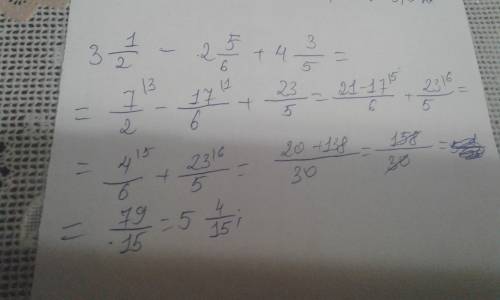 3 1/2 - 2 5/6 + 4 3/5 =
= 7^{13}/2 - 17^{11}/6 + 23/5 = 21-17^{15}/6 + 23^{16}/5 =
= 4^{15}/6 + 23^{16}/5 = 20+138/30 = 158/30 =
= 79/15 = 5 4/15;